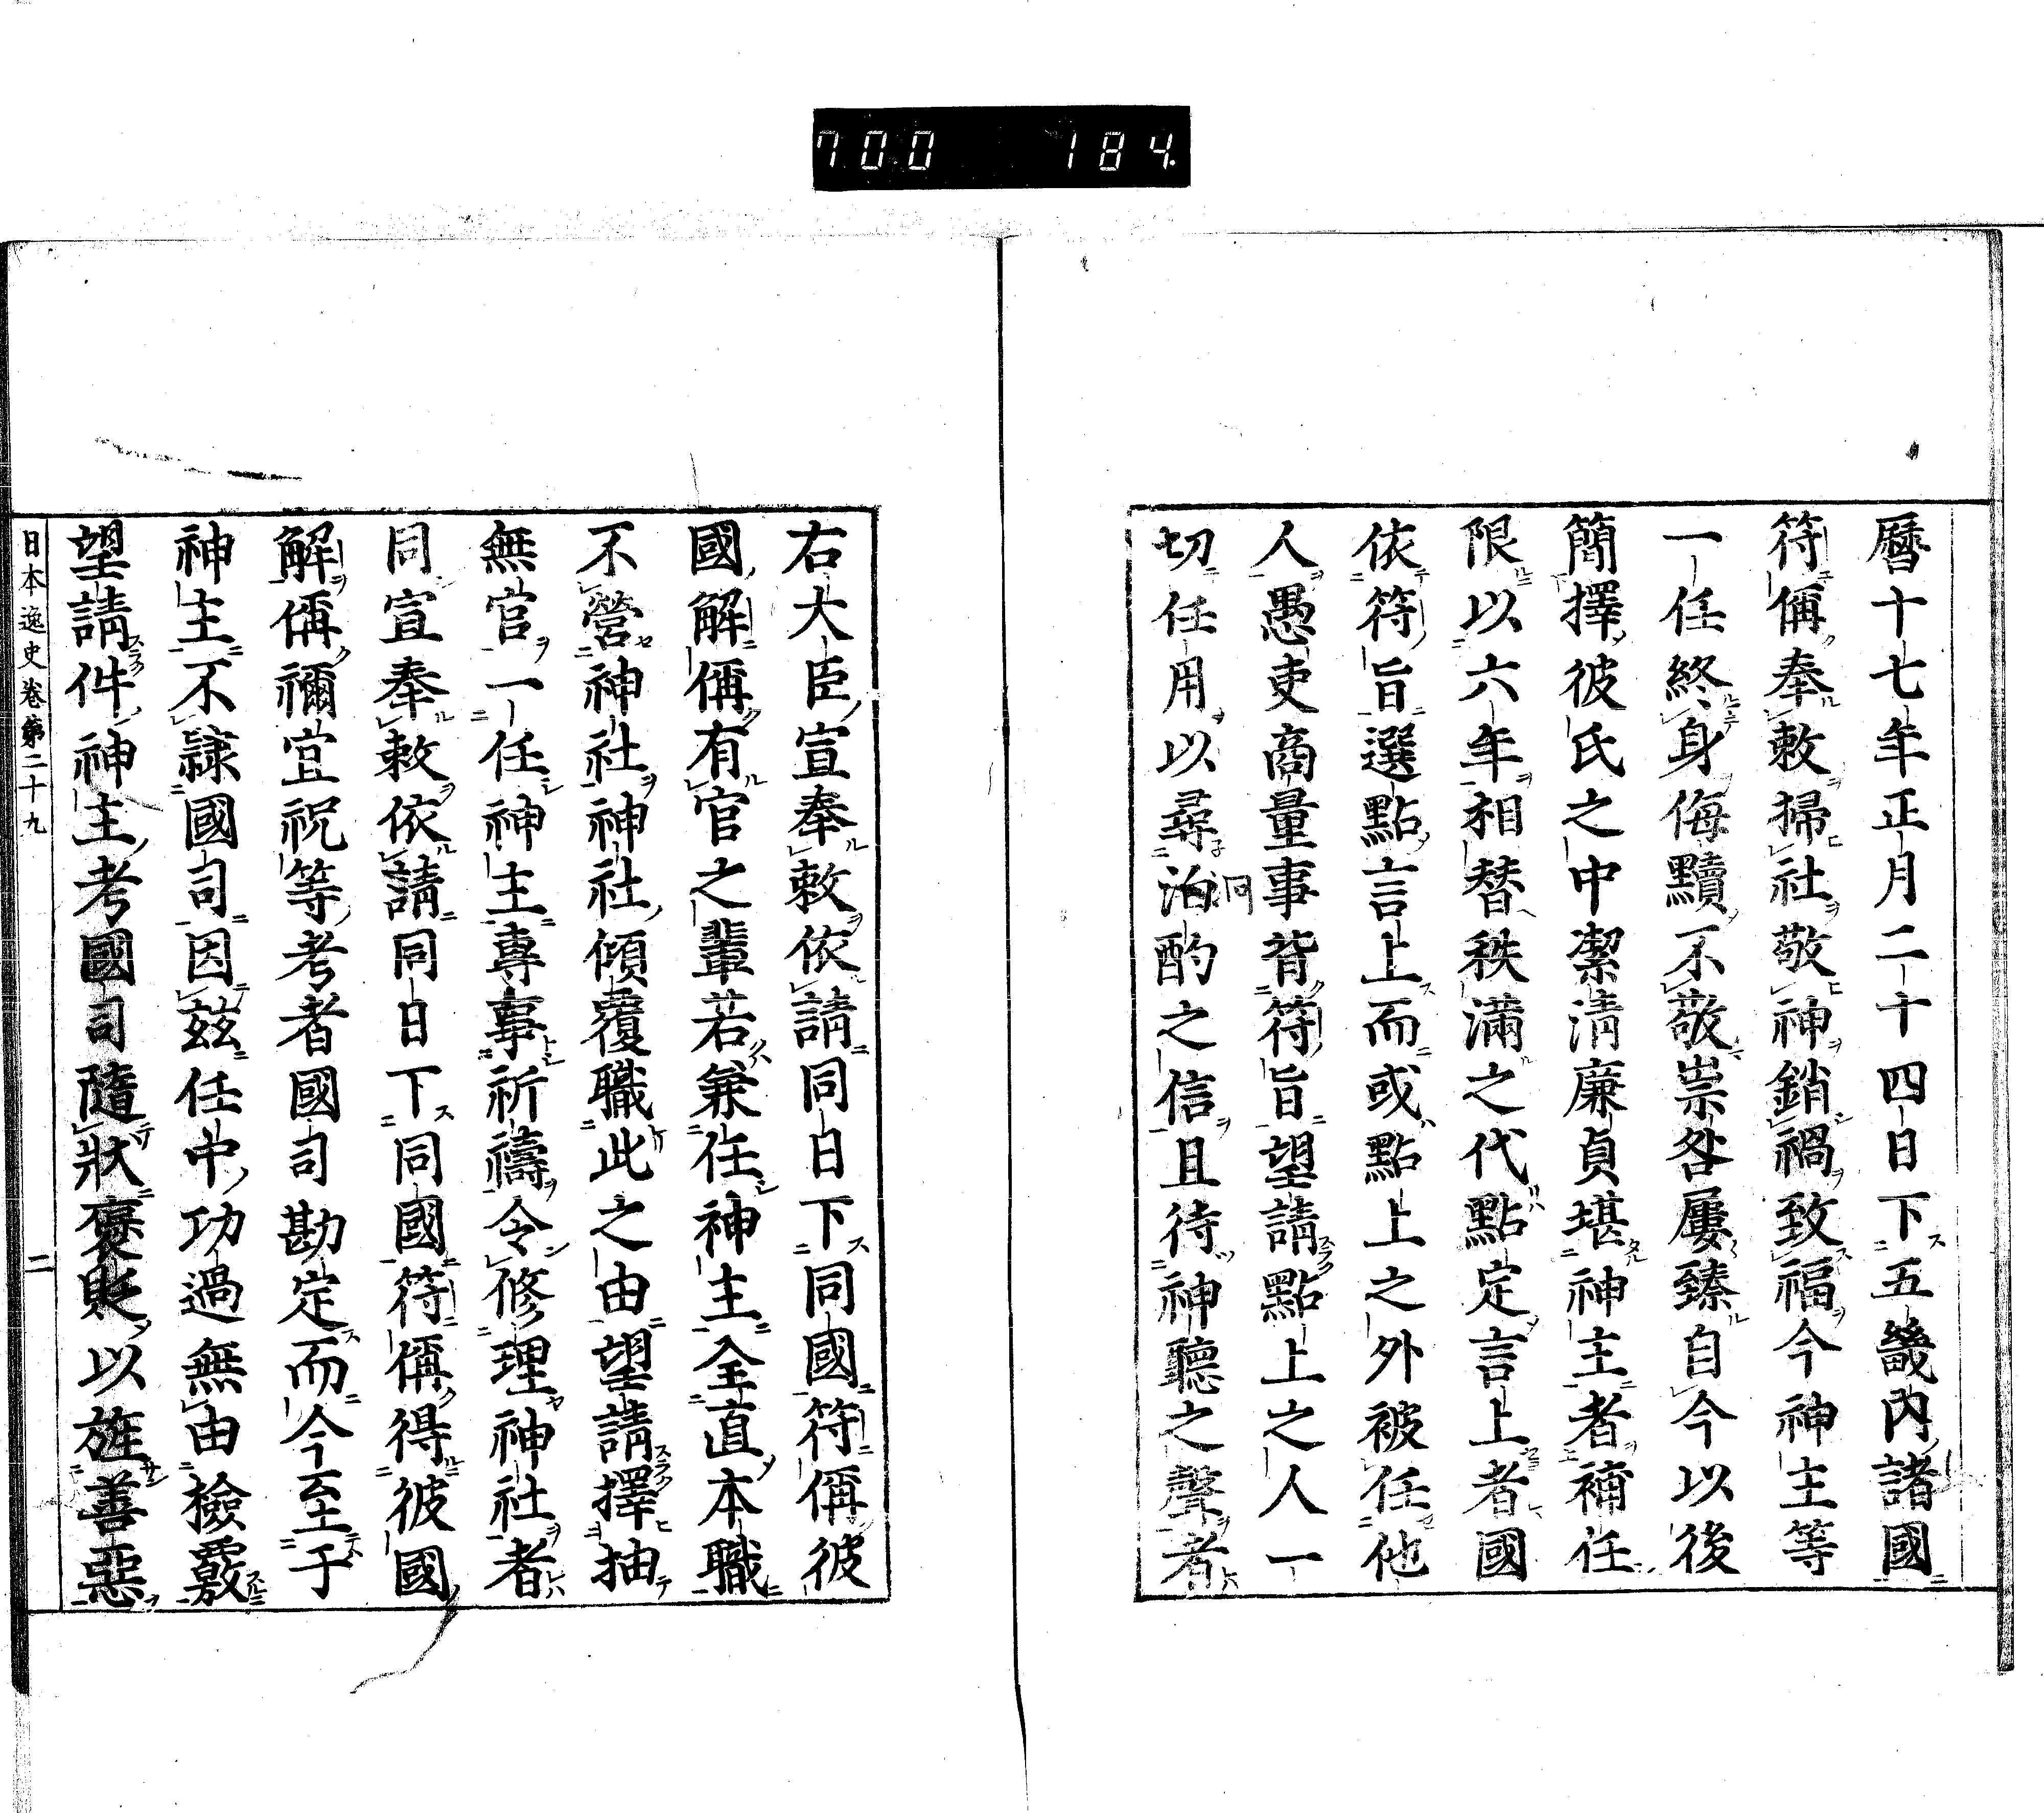 700 184
曆十七年正月二十四日下五畿內諸國
符偁奉敕掃社敬神銷禍致福今神主等
一任終身侮黷不敬祟咎屢臻自今以後
簡擇彼氏之中潔清廉貞堪神主者補任
限以六年相替秩滿之代點定言上者國
依符旨選點言上而或點上之外被任他
人愚吏商量事背符旨望請點上之人一
切任用以尋泂酌之信且待神聽之聲者
右大臣宣奉敕依請同日下同國符偁彼
國解偁有官之輩若兼任神主全直本職
不營神社神社傾覆職此之由望請擇抽
無官一任神主專事祈禱令修理神社者
同宣奉敕依請同日下同國符偁得彼國
解偁禰宜祝等考者國司勘定而今至于
神主不隷國司因茲任中功過無由檢覈
望請件神主考國司隨狀褒貶以旌善惡
日本逸史卷第二十九 二